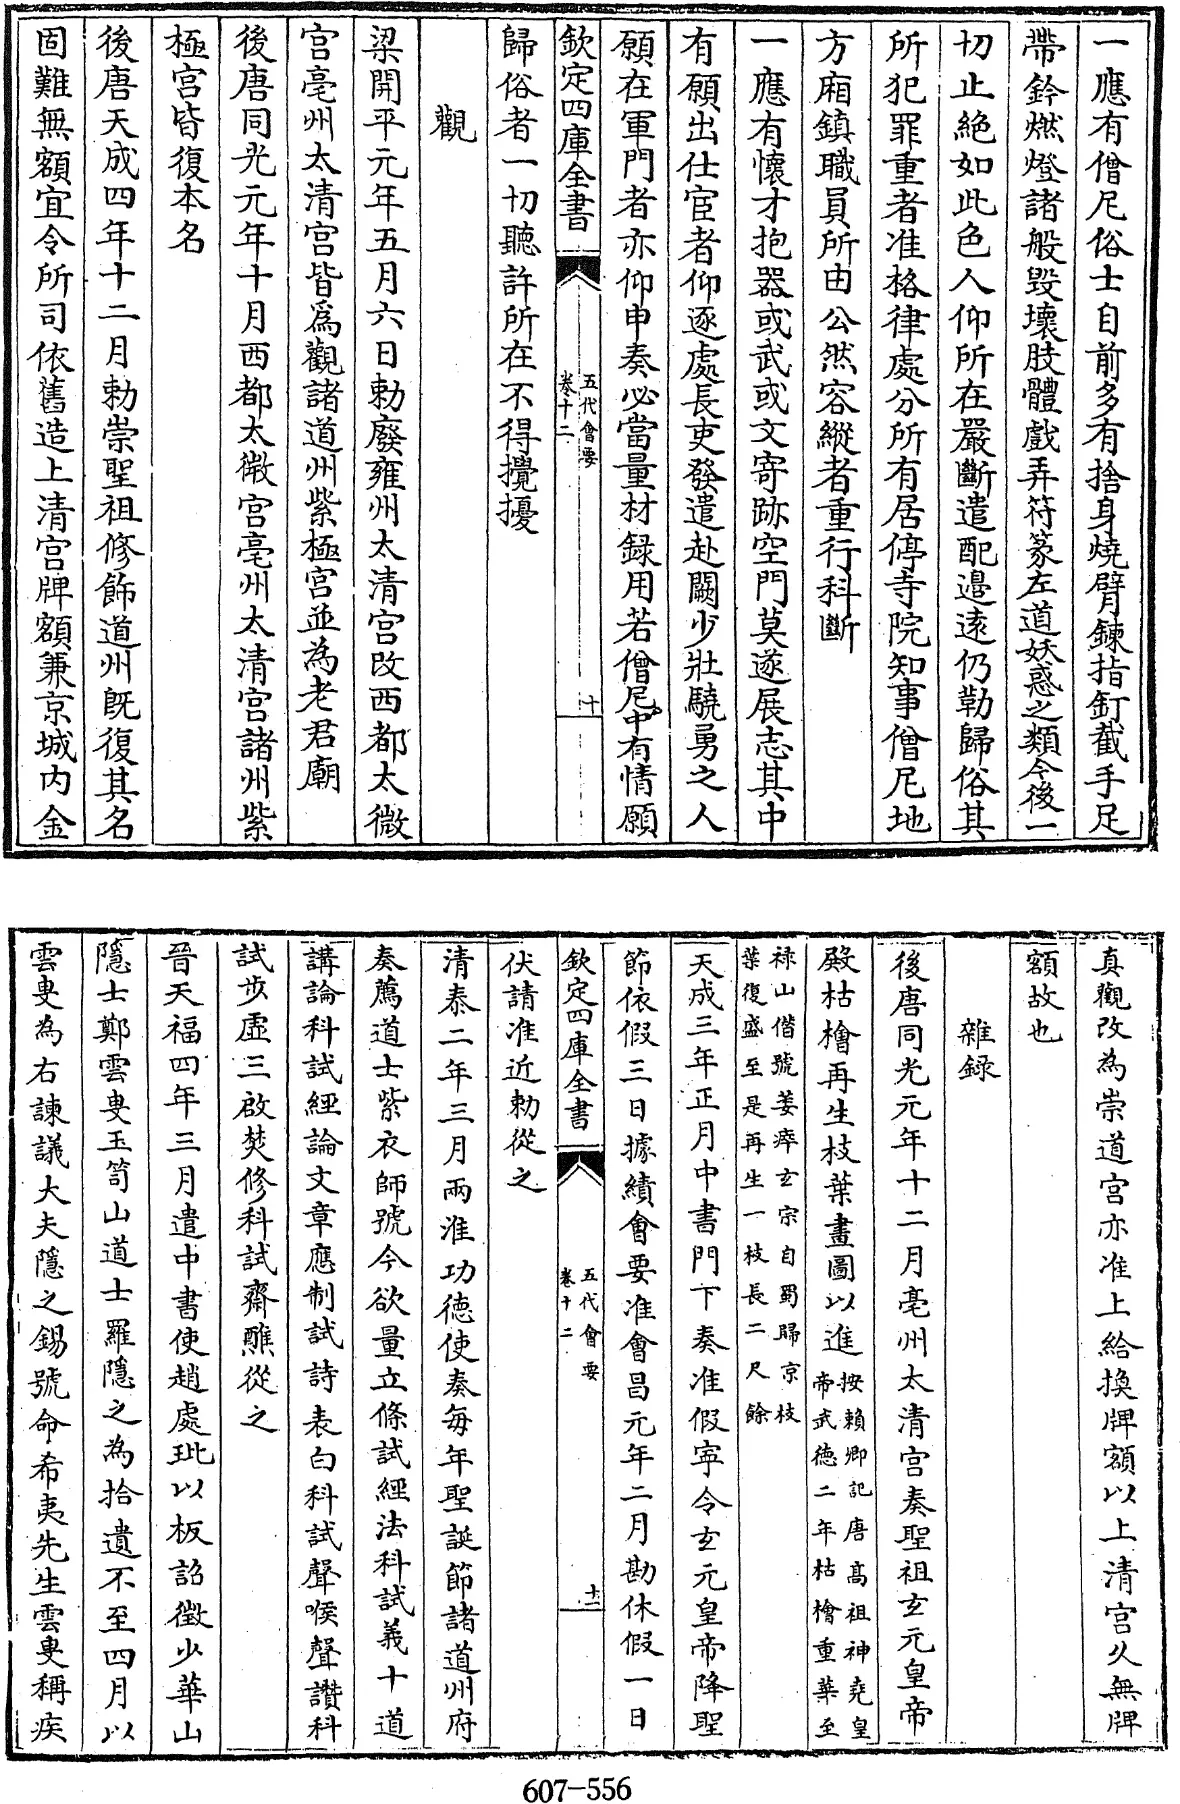 一應有僧尼俗士自前多有捨身燒臂鍊指釘截手足
帶鈴燃燈諸般毀壞肢體戲弄符篆左道妖惑之類今後一
切止絶如此色人仰所在嚴斷遣配邉逺仍勒歸俗其
所犯罪重者准格律處分所有居停寺院知事僧尼地
方廂鎮職員所由公然容縱者重行科斷
一應有懷才抱器或武或文寄跡空門莫遂展志其中
有願出仕宦者仰逐處長吏發遣赴闕少壯驍勇之人
願在軍門者亦仰申奏必當量材録用若僧尼中有情願
欽定四庫全書
五代會要
卷十二
十
歸俗者一切聽許所在不得攪擾
觀
梁開平元年五月六日勅廢雍州太清宫改西都太微
宫亳州太清宫皆爲觀諸道州紫極宫並為老君廟
後唐同光元年十月西都太微宫亳州太清宫諸州紫
極宫皆復本名
後唐天成四年十二月勅崇聖祖修飾道州既復其名
固難無額宜令所司依舊造上清宫牌額兼京城内金
真觀改為崇道宫亦准上給換牌額以上清宫久無牌
額故也
雜録
後唐同光元年十二月亳州太清宫奏聖祖玄元皇帝
殿枯檜再生枝葉畫圖以進按賴卿記唐髙祖神堯皇
帝武德二年枯檜重華至
禄山僭號萎瘁玄宗自蜀歸京枝
葉復盛至是再生一枝長二尺餘
天成三年正月中書門下奏准假寧令玄元皇帝降聖
節依假三日據續會要准會昌元年二月勘休假一日
欽定四庫全書
五代會要
卷十二
十一
伏請准近勅從之
清泰二年三月兩淮功德使奏每年聖誕節諸道州府
奏薦道士紫衣師號今欲量立條試經法科試義十道
講論科試經論文章應制試詩表白科試聲喉聲讚科
試步虚三啟焚修科試齋醮從之
晉天福四年三月遣中書使趙處玭以板詔徴少華山
隱士鄭雲叟玉笥山道士羅隱之為拾遺不至四月以
雲叟為右諫議大夫隱之錫號命希夷先生雲叟稱疾
607-556